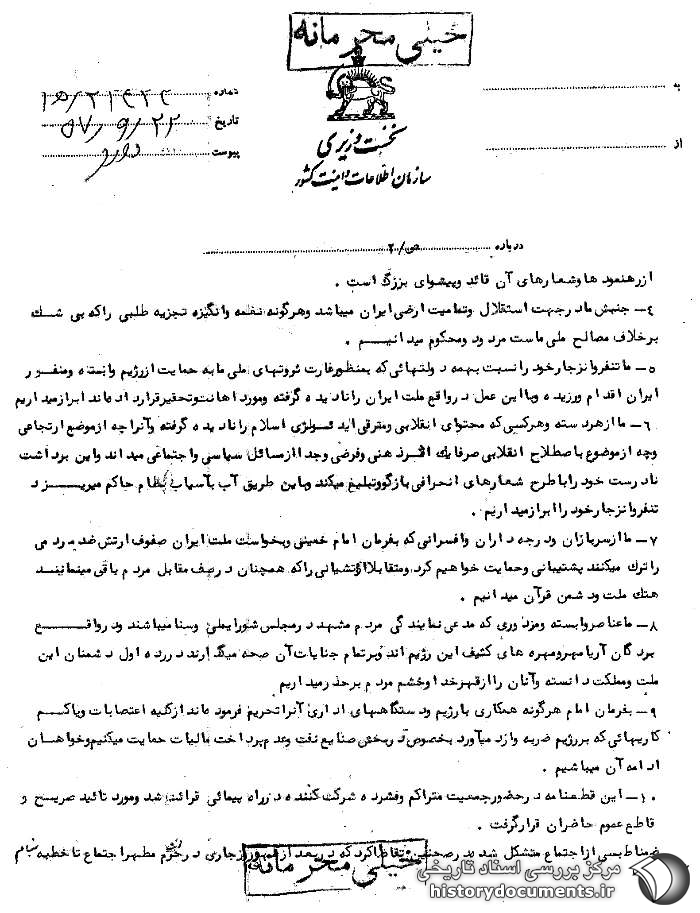 خیلی محرمانه
شماره ۱۵/۲۱۴۲۴
تاریخ ۵۷/۹/۲۲
پیوست دارد
به
از
نخست وزیری
سازمان اطلاعات و امنیت کشور
درباره ص/۲
از رهنمودها و شعارهای آن قائد و پیشوای بزرگ است .
٤- جنبش ما در جهت استقلال و تمامیت ارضی ایران میباشد و هرگونه نغمه و انگیزه تجزیه طلبی را که بی شک
برخلاف مصالح ملی ماست مردود و محکوم میدانیم .
٥- ما تنفر و انزجار خود را نسبت بهمه دولتهائی که بمنظور غارت ثروتهای ملی ما به حمایت از رژیم وابسته و منفور
ایران اقدام ورزیده و با این عمل در واقع ملت ایران را نادیده گرفته و مورد اهانت و تحقیر قرار داده اند ابراز میداریم
٦- ما از هر دسته و هرکسی که محتوای انقلابی و مترقی ایدئولژی اسلام را نادیده گرفته و آنرا چه از موضع ارتجاعی
و چه از موضوع باصطلاح انقلابی صرفا یک ذهنی و فرضی و جدا از مسائل سیاسی و اجتماعی میداند و این برداشت
نادرست خود را با طرح شعارهای انحرافی بازگو و تبلیغ میکند و باین طریق آب بآسیاب نظام حاکم میریزد
تنفر و انزجار خود را ابراز میداریم .
٧- ما از سربازان و درجه داران و افسرانی که بفرمان امام خمینی و بخواست ملت ایران صفوف ارتش ضد مردمی
را ترک میکنند پشتیبانی و حمایت خواهیم کرد و متقابلا ارتشیانی را که همچنان در صف مقابل مردم باقی میمانند
هتک ملت و دشمن قرآن میدانیم .
٨- ما عناصر وابسته و مزدوری که مدعی نمایندگی مردم مشهد در مجلس شورایملی و سنا میباشند و در واقع
بردگان آریامهر و مهره های کثیف این رژیم اند و بر تمام جنایات آن صحه میگذارند در رده اول دشمنان این
ملت و مملکت دانسته و آنان را از قهر خدا و خشم مردم برحذر میداریم
٩- بفرمان امام هرگونه همکاری با رژیم و دستگاههای اداری آنرا تحریم فرموده اند از کلیه اعتصابات و یا کم
کاریهائی که بر رژیم ضربه وارد میآورد بخصوص در بخش صنایع نفت و عدم پرداخت مالیات حمایت میکنیم و خواهان
ادامه آن میباشیم .
١٠- این قطعنامه در حضور جمعیت متراکم و فشرده شرکت کننده در راه پیمائی قرائت شد و مورد تائید صریح و
قاطع عموم حاضران قرار گرفت .
ضمنا طبسی از اجتماع متشکل شده در صحنین تقاضا کرد که در بعد از ظهر روز جاری در حرم مطهر اجتماع تا خطبه
خیلی محرمانه
مرکز بررسی اسناد تاریخی
historydocuments.ir